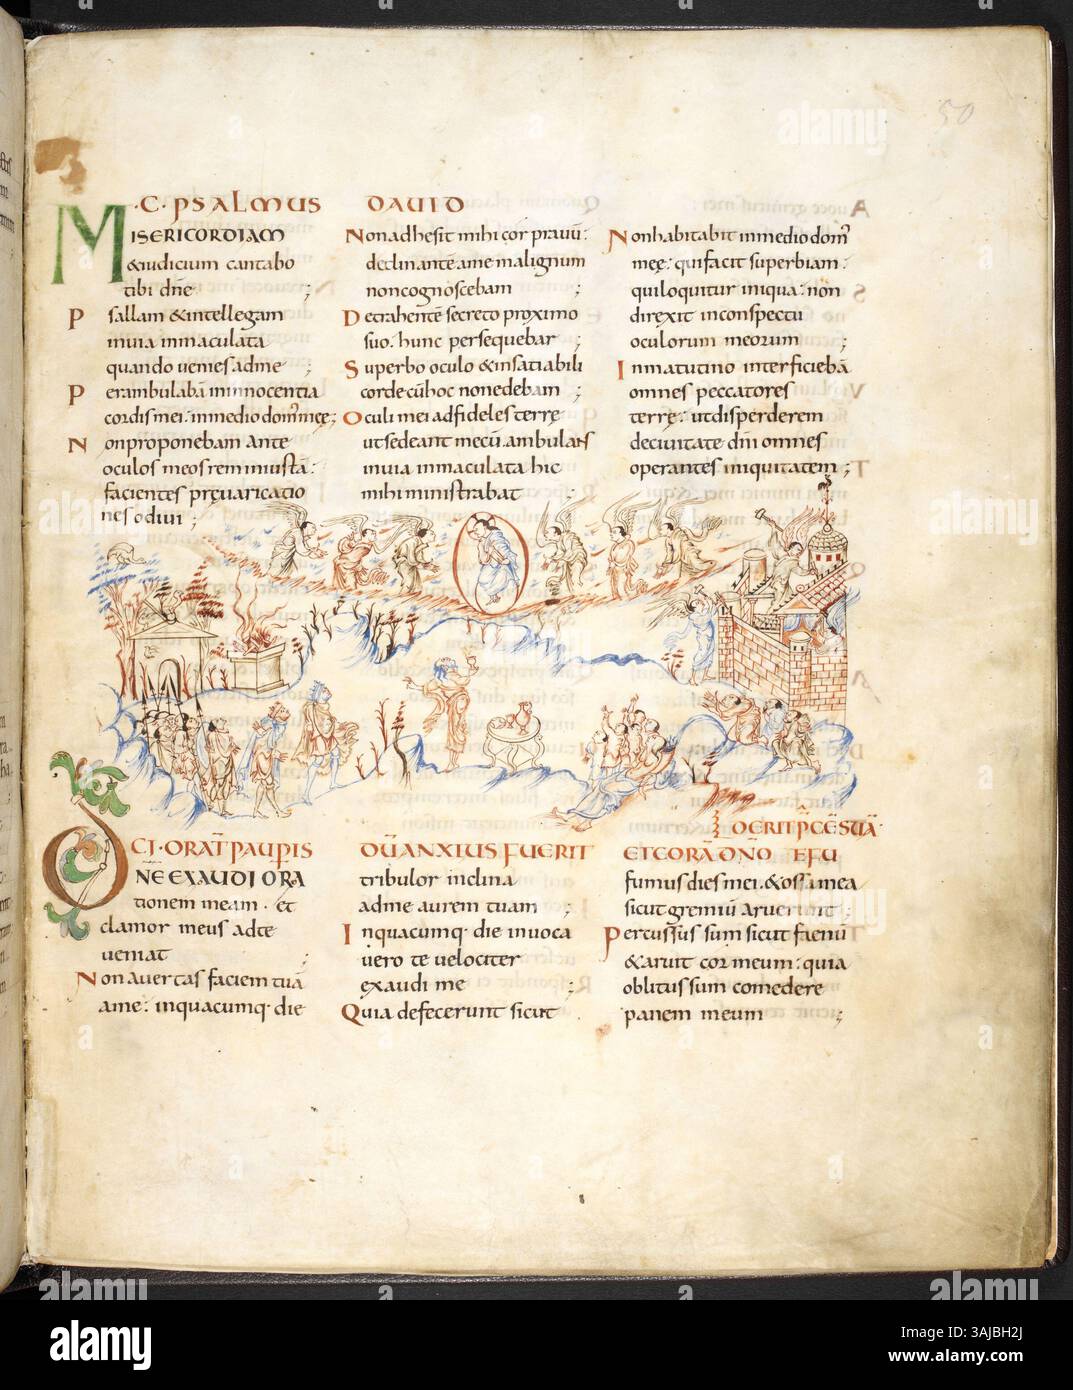 50
·C· PSALMUS DAUID
MISERICORDIAM
&iudicium cantabo
tibi dñe ;
Psallam &intellegam
inuia inmaculata
quando uenies adme ;
Perambulabā ininnocentia
cordis mei: inmedio dom' meę ;
Nonproponebam ante
oculos meos rem iniustā:
facientes pręuaricatio
nes odiui ;
Nonadhesit mihi cor prauū:
declinantē ame malignum
noncognoscebam ;
Detrahentē secreto proximo
suo: hunc persequebar ;
Superbo oculo &insatiabili
corde: cūhoc nonedebam ;
Oculi mei adfideles terrę
utsedeant mecū. ambulans
inuia inmaculata hic
mihi ministrabat ;
Nonhabitabit inmedio dom'
meę: quifacit superbiam:
quiloquitur iniqua: non
direxit inconspectu
oculorum meorum ;
Inmatutino interficiebā
omnes peccatores
terrę: utdisperderem
deciuitate dñi omnes
operantes iniquitatem ;
CI· ORAT PAUPIS
DÑE EXAUDI ORA
tionem meam · et
clamor meus adte
ueniat ;
Non auertas faciem tuā
ame: inquacumq· die
CŪ ANXIUS FUERIT
tribulor inclina
adme aurem tuam ;
Inquacumq· die inuoca
uero te uelociter
exaudi me ;
Quia defecerunt sicut
ET CORĀ DÑO EFU
DERIT PCĒ SUĀ·
fumus dies mei · &ossa mea
sicut gremiū aruerunt ;
Percussus sum sicut faenū
&aruit cor meum: quia
oblitus sum comedere
panem meum ;
alamy
Image ID: 3AJBH2J
www.alamy.com